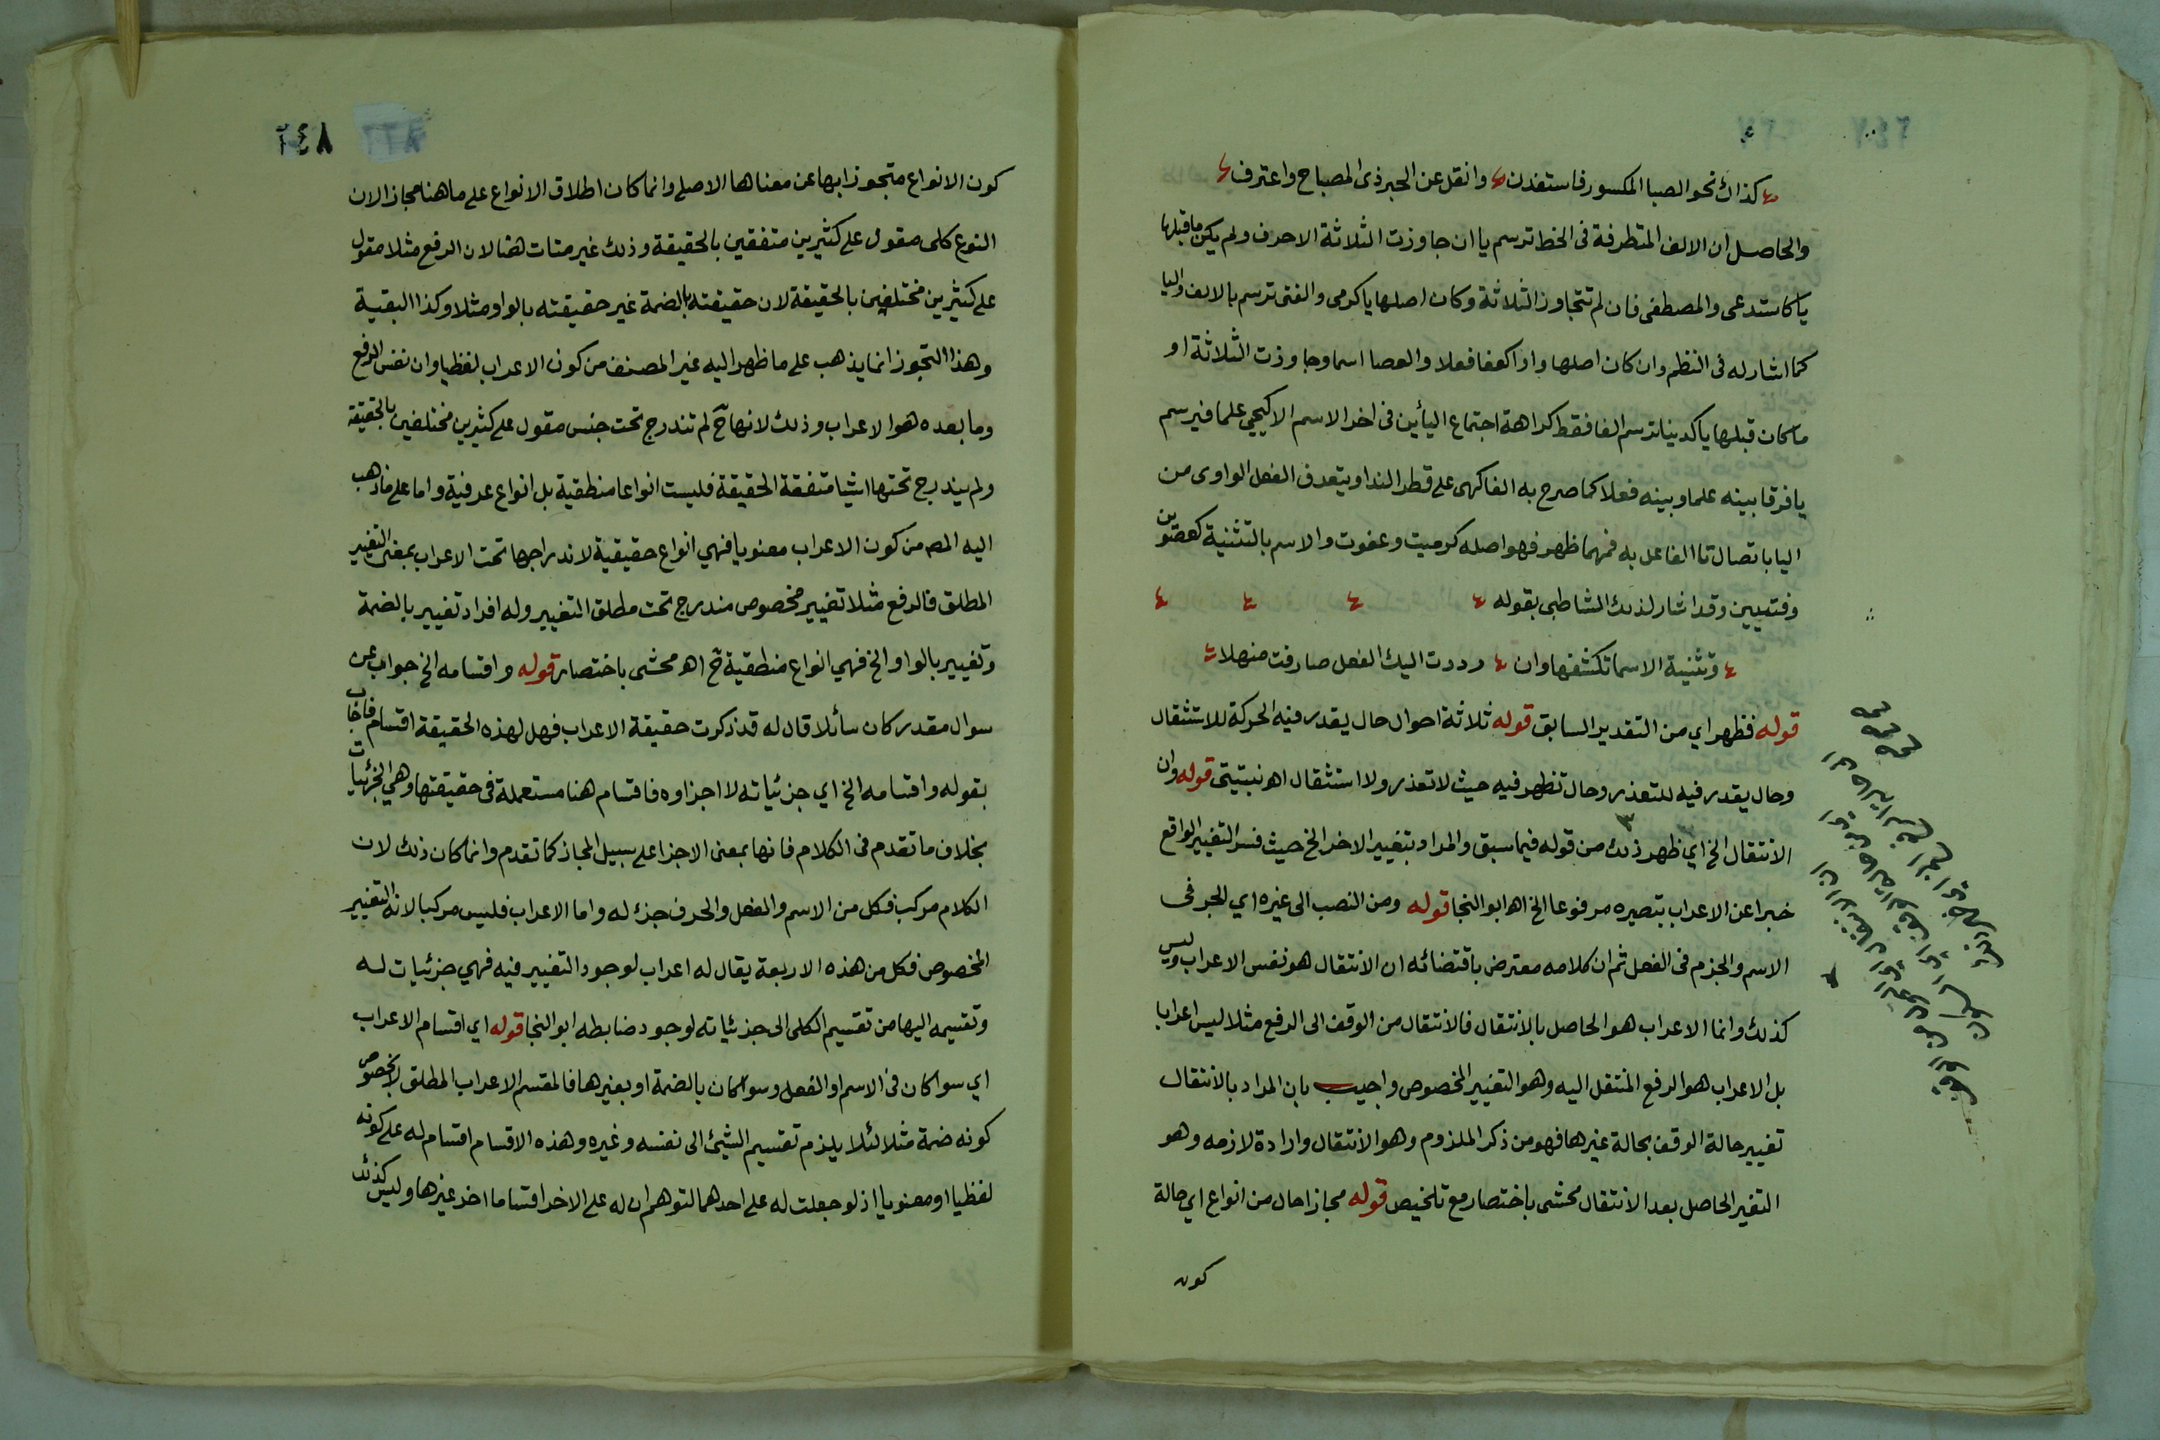 كذاك نحو الصبا المكسور فاستفدن وانقل عن الحبر ذي المصباح واعترف
والحاصل ان الالف المتطرفة فى الخط ترسم يا ان جاوزت الثلاثة الاحرف ولم يكن ما قبلها
يا كاستدعى والمصطفى فان لم تتجاوز الثلاثة وكان اصلها يا كرمى والفتى ترسم بالالف واليا
كما اشار له فى النظم وان كان اصلها واوا كعفا فعلا والعصا اسما وجاوزت الثلاثة او
ما كان قبلها يا كدنيا ترسم الفا فقط كراهة اجتماع اليأين فى اخر الاسم الا كيحيى علما فيرسم
يا فرقا بينه علما وبينه فعلا كما صرح به الفاكهى على قطر الندا ويتعرف الفعل الواوى من
اليا باتصال تا الفاعل به فمهما ظهر فهو اصله كرميت وعفوت والاسم بالتثنية كعصوين
وفتيين وقد اشار لذلك الشاطبى بقوله
وتثنية الاسما تكشفها وان رددت اليك الفعل صادفت منهلا
قوله فظهر اي من التقدير السابق قوله ثلاثة احوال حال يقدر فيه الحركة للاستثقال
وحال يقدر فيه للتعذر وحال تظهر فيه حيث لا تعذر ولا استثقال اهـ نبتيتى قوله وان
الانتقال الخ اي ظهر ذلك من قوله فيما سبق والمراد بتغيير الاخر الخ حيث فسر التغيير الواقع
خبرا عن الاعراب بتصيره مرفوعا الخ اهـ ابو النجا قوله ومن النصب الى غيره اي الجر فى
الاسم والجزم فى الفعل ثم ان كلامه معترض باقتضائه ان الانتقال هو نفس الاعراب وليس
كذلك وانما الاعراب هو الحاصل بالانتقال فالانتقال من الوقف الى الرفع مثلا ليس اعرابا
بل الاعراب هو الرفع المنتقل اليه وهو التغيير المخصوص واجيب بان المراد بالانتقال
تغيير حالة الوقف بحالة غيرها فهو من ذكر الملزوم وهو الانتقال وارادة لازمه وهو
التغير الحاصل بعد الانتقال محشى باختصار مع تلخيص قوله مجازا حال من انواع اي حالة
كون
٨٤٦
كون الانواع متجوزا بها عن معناها الاصلى وانما كان اطلاق الانواع على ما هنا مجازا لان
النوع كلى مقول على كثيرين متفقين بالحقيقة وذلك غير متات هنا لان الرفع مثلا مقول
على كثيرين مختلفين بالحقيقة لان حقيقته بالضمة غير حقيقته بالواو مثلا وكذا البقية
وهذا التجوز انما يذهب على ما ظهر اليه غير المصنف من كون الاعراب لفظيا وان نفس الرفع
وما بعده هو الاعراب وذلك لانها ح لم تندرج تحت جنس مقول على كثيرين مختلفين بالحقيقة
ولم يندرج تحتها اشيا متفقة الحقيقة فليست انواعا منطقية بل انواع عرفية واما على ما ذهب
اليه المص من كون الاعراب معنويا فهي انواع حقيقية لاندراجها تحت الاعراب بمعنى التغيير
المطلق فالرفع مثلا تغيير مخصوص مندرج تحت مطلق التغيير وله افراد تغيير بالضمة
وتغيير بالواو الخ فهي انواع منطقية ح اهـ محشى باختصار قوله واقسامه الخ جواب عن
سوال مقدر كان سائلا قال له قد ذكرت حقيقة الاعراب فهل لهذه الحقيقة اقسام فاجاب
بقوله واقسامه الخ اي جزئياته لا اجزاوه فاقسام هنا مستعملة فى حقيقتها وهي الجزئيات
بخلاف ما تقدم فى الكلام فانها بمعنى الاجزا على سبيل المجاز كما تقدم وانما كان ذلك لان
الكلام مركب فكل من الاسم والفعل والحرف جزء له واما الاعراب فليس مركبا لانه التغيير
المخصوص فكل من هذه الاربعة يقال له اعراب لوجود التغيير فيه فهي جزئيات له
وتقسيمه اليها من تقسيم الكلى الى جزئياته لوجود ضابطه ابو النجا قوله اي اقسام الاعراب
اي سوا كان فى الاسم او الفعل وسوا كان بالضمة او بغيرها فالمقسم الاعراب المطلق لا بخصوص
كونه ضمة مثلا لئلا يلزم تقسيم الشيئ الى نفسه وغيره وهذه الاقسام اقسام له على كونه
لفظيا او معنويا اذ لو جعلت له على احدهما لتوهم ان له على الاخر اقساما اخر غيرها وليس كذلك